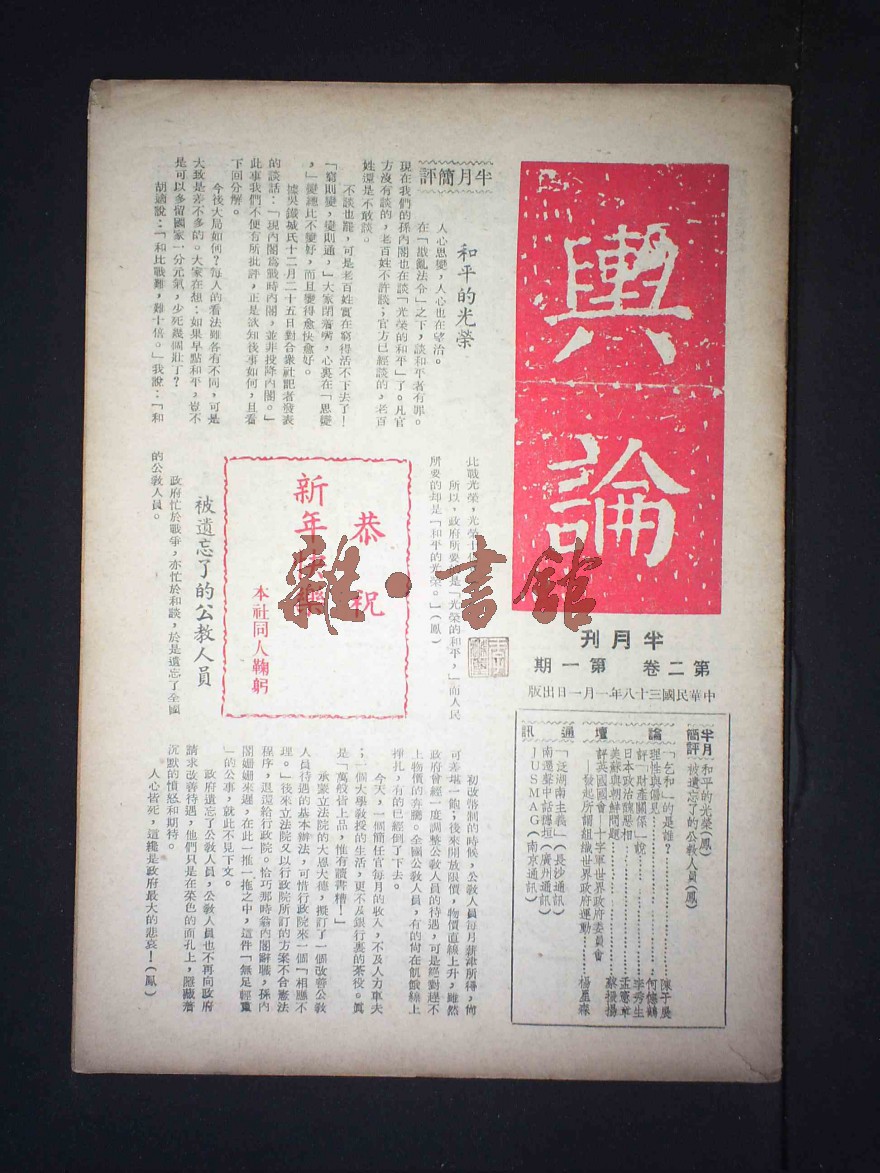 輿論
半月刊
第二卷 第一期
中華民國三十八年一月一日出版
半月簡評
和平的光榮(鳳)
被遺忘了的公教人員(鳳)
論壇
「乞和」的是誰?
理性與偏見
評「財產關係」說
日本政治醜惡相
美蘇與朝鮮問題
評英國國會「十字軍世界政府委員會
發起所謂組織世界政府運動
通訊
「泛湖南主義」(長沙通訊)
南還聲中話穗垣(廣州通訊)
JUSMAG(南京通訊)
半月簡評
和平的光榮
人心思變,人心也在望治。
在「戡亂法令」之下,談和平者有罪。
現在我們的孫內閣也在談「光榮的和平」了。凡官
方沒有談的,老百姓不許談;官方已經談的,老百
姓還是不敢談。
不談也罷,可是老百姓實在窮得活不下去了!
「窮則變,變則通,」大家閉着嘴,心裏在「思變
,」變總比不變好,而且變得愈快愈好。
據吳鐵城氏十二月二十五日對合衆社記者發表
的談話:「現內閣爲戰時內閣,並非投降內閣。」
此事我們不便有所批評,正是欲知後事如何,且看
下回分解。
今後大局如何?每人的看法雖各有不同,可是
大致是差不多的。大家在想:如果早點和平,豈不
是可以多留國家一分元氣,少死幾個壯丁?
胡適說:「和比戰難,難十倍。」我說:「和
比戰光榮,光榮十倍
所以,政府所要 是「光榮的和平,」而人民
所要的却是「和平的光榮。」(鳳)
恭祝
新年快樂
本社同人鞠躬
被遺忘了的公教人員
政府忙於戰爭,亦忙於和談,於是遺忘了全國
的公教人員。
初改幣制的時候,公教人員每月薪津所得,尙
可差堪一飽;後來開放限價,物價直線上升,雖然
政府曾經一度調整公教人員的待遇,可是絕對趕不
上物價的奔騰。全國公教人員,有的尙在飢餓線上
掙扎,有的已經倒了下去。
今天,一個簡任官每月的收入,不及人力車夫
;一個大學教授的生活,更不及銀行裏的茶役。眞
是「萬般皆上品,惟有讀書糟!」
承蒙立法院的大恩大德,擬訂了一個改善公教
人員待遇的基本辦法,可惜行政院來一個「相應不
理。」後來立法院又以行政院所訂的方案不合憲法
程序,退還給行政院。恰巧那時翁內閣辭職,孫內
閣姍姍來遲,在此一推一拖之中,這件「無足輕重
」的公事,就此不見下文。
政府遺忘了公教人員,公教人員也不再向政府
請求改善待遇,他們只是在菜色的面孔上,隱藏着
沉默的憤怒和期待。
人心皆死,這纔是政府最大的悲哀!(鳳)
雜·書館